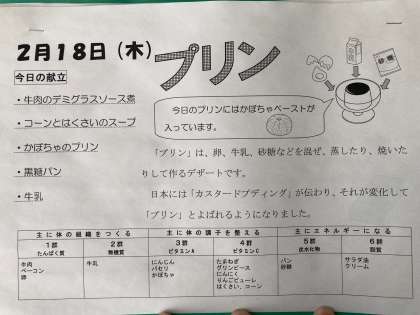 2月18日（木）
プリン
砂糖
今日の献立
・牛肉のデミグラスソース煮
・コーンとはくさいのスープ
・かぼちゃのプリン
・黒糖パン
・牛乳
今日のプリンにはかぼちゃペーストが
入っています。
「プリン」は、卵、牛乳、砂糖などを混ぜ、蒸したり、焼いた
りして作るデザートです。
日本には「カスタードプディング」が伝わり、それが変化して
「プリン」とよばれるようになりました。
主に体の組織をつくる 主に体の調子を整える 主にエネルギーになる
1群 2群 3群 4群 5群 6群
たんぱく質 無機質 ビタミンA ビタミンC 炭水化物 脂質
牛肉 牛乳 にんじん たまねぎ パン サラダ油
ベーコン パセリ グリンピース 砂糖 クリーム
卵 かぼちゃ にんにく
りんごピューレ
はくさい、コーン